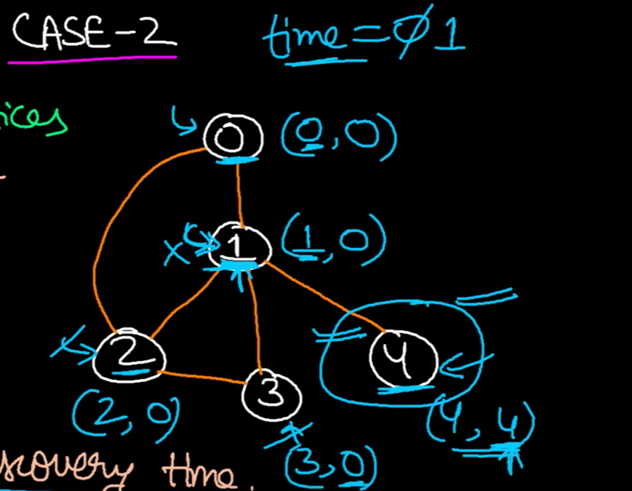 CASE-2 time = 0 1
ices
0 (0,0)
1 (1,0)
2
4
3
(2,0)
(4,4)
scovery time.
(3,0)